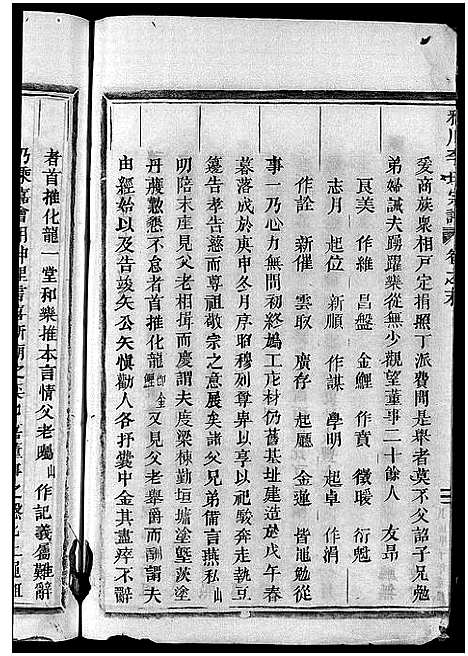 李氏宗譜 卷之末
爰商族衆相戶定捐照丁派費閤是舉者莫不父詔子兄勉
弟婦誡夫踴躍樂從無少觀望董事二十餘人 友昂
良美 作維 昌盤 金鯉 作賁 徵暖 衍魁
志月 起位 新承 作謀 學明 起卓 作渭
作詮 新催 雲取 廣存 起廳 金蓮 皆黽勉從
事一乃心力無間終始鳩工庀材仍舊基址建造於戊午春
暮落成於庚申冬月序昭穆別尊卑以亨以祀駿奔走執豆
籩告孝告慈敬宗之意展矣諸父兄弟備言燕私山
明陪末座見父老相聚而慶謂夫度梁棟勤垣墉塗塈茨塗
丹雘勤懇不怠者首推化龍 又見父老舉爵而酬謂夫
由經始以及告竣矢公矢愼勸人各抒囊中金其盡瘁不辭
者首推化龍一堂和樂推本言情父老囑山作記義屬難辭